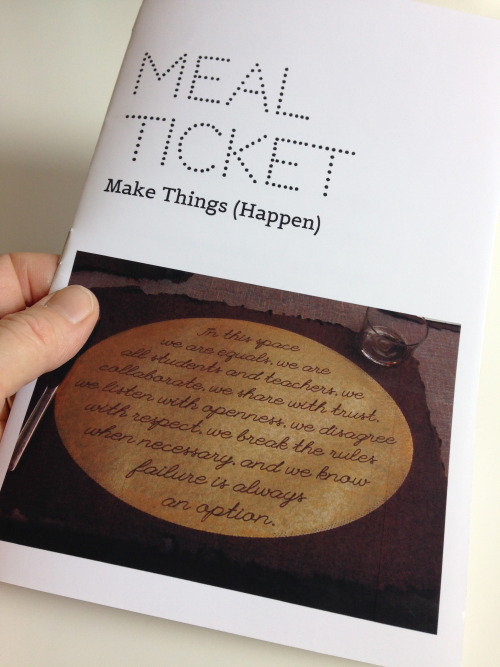 MEAL
TICKET
Make Things (Happen)
In this space
we are equals, we are
all students and teachers, we
collaborate, we share with trust,
we listen with openness, we disagree
with respect, we break the rules
when necessary, and we know
failure is always
an option.